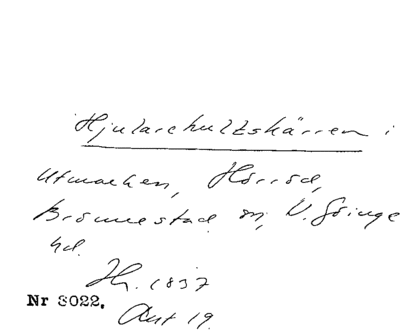 Hjularehultskärren i
Utmarken, Hörröd,
Brönnestad sn, V. Göinge
hd.
Jh. 1837
Nr 8022.
Akt 19.